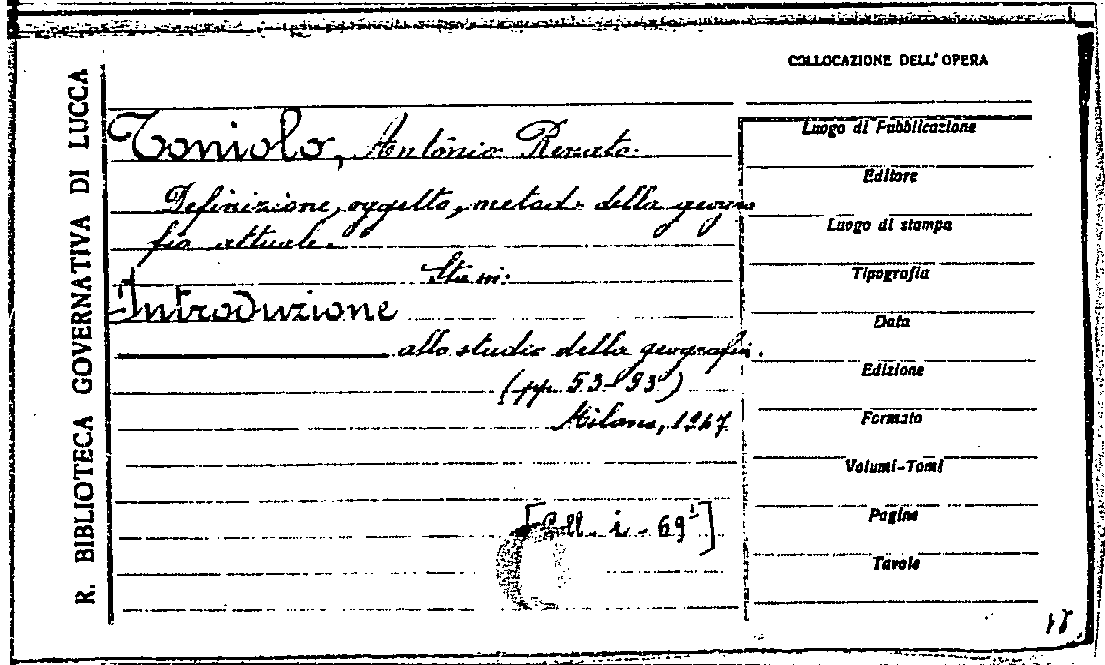 R. BIBLIOTECA GOVERNATIVA DI LUCCA
COLLOCAZIONE DELL' OPERA
Toniolo, Antonio Renato.
Definizione, oggetto, metodi della geogra
fia attuale.
Sta in:
Introduzione
allo studio della geografia.
(pp. 53-93)
Milano, 1947
[Coll. i - 69¹]
Luogo di Pubblicazione
Editore
Luogo di stampa
Tipografia
Data
Edizione
Formato
Volumi-Tomi
Pagine
Tavole